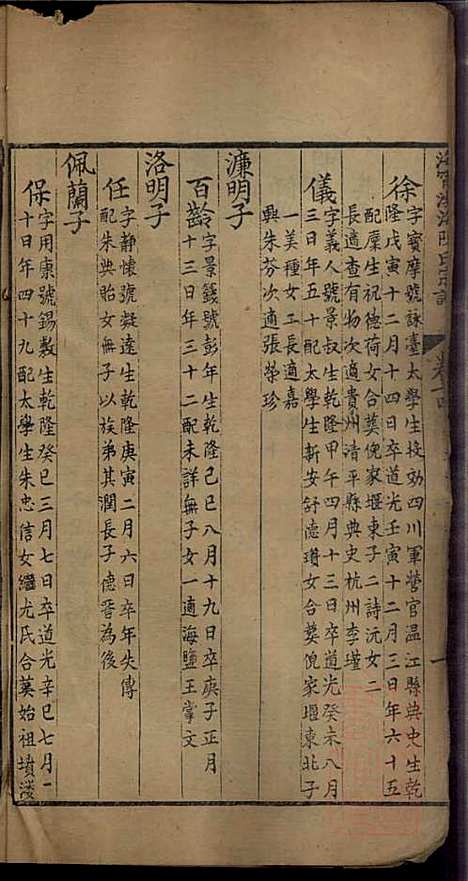 徐
字寶摩號詠臺太學生校効四川軍營官温江縣典史生乾
隆戊寅十二月十四日卒道光壬寅十二月三日年六十五
配糜生祝德荷女合葬倪家堰東子二詩沅女二
長適查有物次適貴州清平縣典史杭州李瑾
儀
字義人號景叔生乾隆甲午四月十三日卒道光癸未八月
三日年五十配太學生新安舒德瓚女合葬倪家堰東北子
一美種女二長適嘉
興朱芬次適張榮珍
濂明子
百齡
字景籛號彭年生乾隆己巳八月十九日卒庚子正月
十三日年三十二配未詳無子女一適海鹽王掌文
洛明子
任
字靜懷號凝遠生乾隆庚寅二月六日卒年失傳
配朱典貽女無子以族弟其潤長子德晋為後
佩蘭子
保
字用康號錫敷生乾隆癸巳三月七日卒道光辛巳七月一
十日年四十九配太學生朱忠信女繼尤氏合葬始祖墳淩